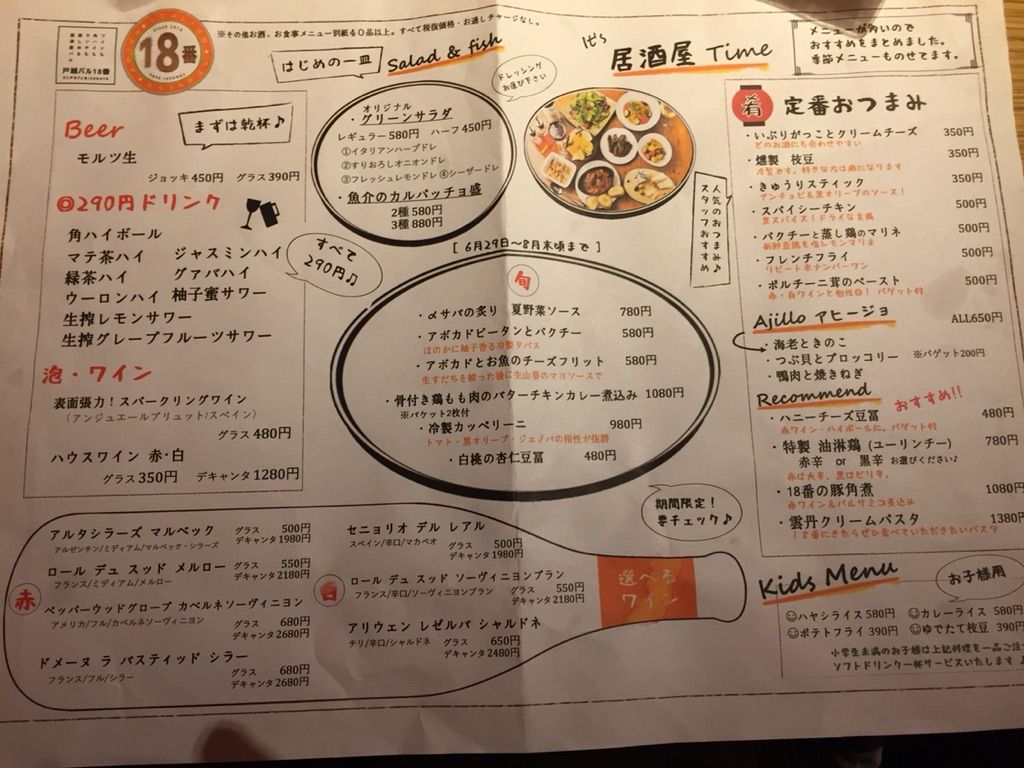 18番
戸越バル18番
※その他お酒、お食事メニュー別紙40品以上。すべて税抜価格・お通しチャージなし。
はじめの一皿
Salad & fish
It's
居酒屋 Time
メニューが多いので
おすすめをまとめました。
季節メニューものせてます。
Beer
まずは乾杯♪
モルツ生
ジョッキ450円 グラス390円
◎290円ドリンク
角ハイボール
マテ茶ハイ ジャスミンハイ
緑茶ハイ グァバハイ
ウーロンハイ 柚子蜜サワー
生搾レモンサワー
生搾グレープフルーツサワー
すべて
290円♪
泡・ワイン
表面張力!スパークリングワイン
(アンジュエールブリュット/スペイン)
グラス480円
ハウスワイン 赤・白
グラス350円 デキャンタ1280円
オリジナル
・グリーンサラダ
レギュラー580円 ハーフ450円
①イタリアンハーブドレ
②すりおろしオニオンドレ
③フレッシュレモンドレ ④シーザードレ
・魚介のカルパッチョ盛
2種 580円
3種 880円
ドレッシング
お選び下さい
人気のおつまみ♪
スタッフおすすめ
[ 6月29日〜8月末頃まで ]
旬
・αサバの炙り 夏野菜ソース 780円
・アボカドピータンとパクチー 580円
ほのかに柚子香る冷製タパス
・アボカドとお魚のチーズフリット 580円
生すだちを絞った後に生山葵のマヨソースで
・骨付き鶏もも肉のバターチキンカレー煮込み 1080円
※バケット2枚付
・冷製カッペリーニ 980円
トマト・黒オリーブ・ジェノバの相性が抜群
・白桃の杏仁豆冨 480円
期間限定!
要チェック♪
肴 定番おつまみ
・いぶりがっことクリームチーズ 350円
どのお酒にも合わせやすい
・燻製 枝豆 350円
・きゅうりスティック 350円
アンチョビ&黒オリーブのソース!
・スパイシーチキン 500円
黒スパイス!ドライな食感
・パクチーと蒸し鶏のマリネ 500円
新鮮蒸鶏を塩レモンマリネ
・フレンチフライ 500円
リピートナンバーワン
・ポルチーニ茸のペースト 500円
赤・白ワインと相性◎! バゲット付
Ajillo アヒージョ ALL650円
・海老ときのこ
・つぶ貝とブロッコリー ※バゲット200円
・鴨肉と焼きねぎ
Recommend おすすめ!!
・ハニーチーズ豆冨 480円
赤ワイン・ハイボールに。バゲット付
・特製 油淋鶏 (ユーリンチー) 780円
赤辛 or 黒辛 お選びください♪
赤は大辛、黒はピリ辛。
・18番の豚角煮 1080円
赤ワイン&バルサミコ煮込み
・雲丹クリームパスタ 1380円
18番にきたらぜひ食べていただきたいパスタ
Kids Menu
お子様用
☺ハヤシライス 580円 ☺カレーライス 580円
☺ポテトフライ 390円 ☺ゆでたて枝豆 390円
小学生未満のお子様は上記料理を一品ご注
ソフトドリンク一杯サービスいたします♪
赤
アルタシラーズ マルベック グラス 500円
アルゼンチン/ミディアム/マルベック・シラーズ デキャンタ1980円
ロール デュ スッド メルロー グラス 550円
フランス/ミディアム/メルロー デキャンタ2180円
ペッパーウッドグローブ カベルネソーヴィニヨン
アメリカ/フル/カベルネソーヴィニヨン グラス 680円
デキャンタ2680円
ドメーヌ ラ バスティッド シラー
フランス/フル/シラー グラス 680円
デキャンタ2680円
白
セニョリオ デル レアル
スペイン/辛口/マカベオ グラス 500円
デキャンタ1980円
ロール デュ スッド ソーヴィニヨンブラン
フランス/辛口/ソーヴィニヨンブラン グラス 550円
デキャンタ2180円
アリウェン レゼルバ シャルドネ
チリ/辛口/シャルドネ グラス 650円
デキャンタ2480円
選べる
ワイン